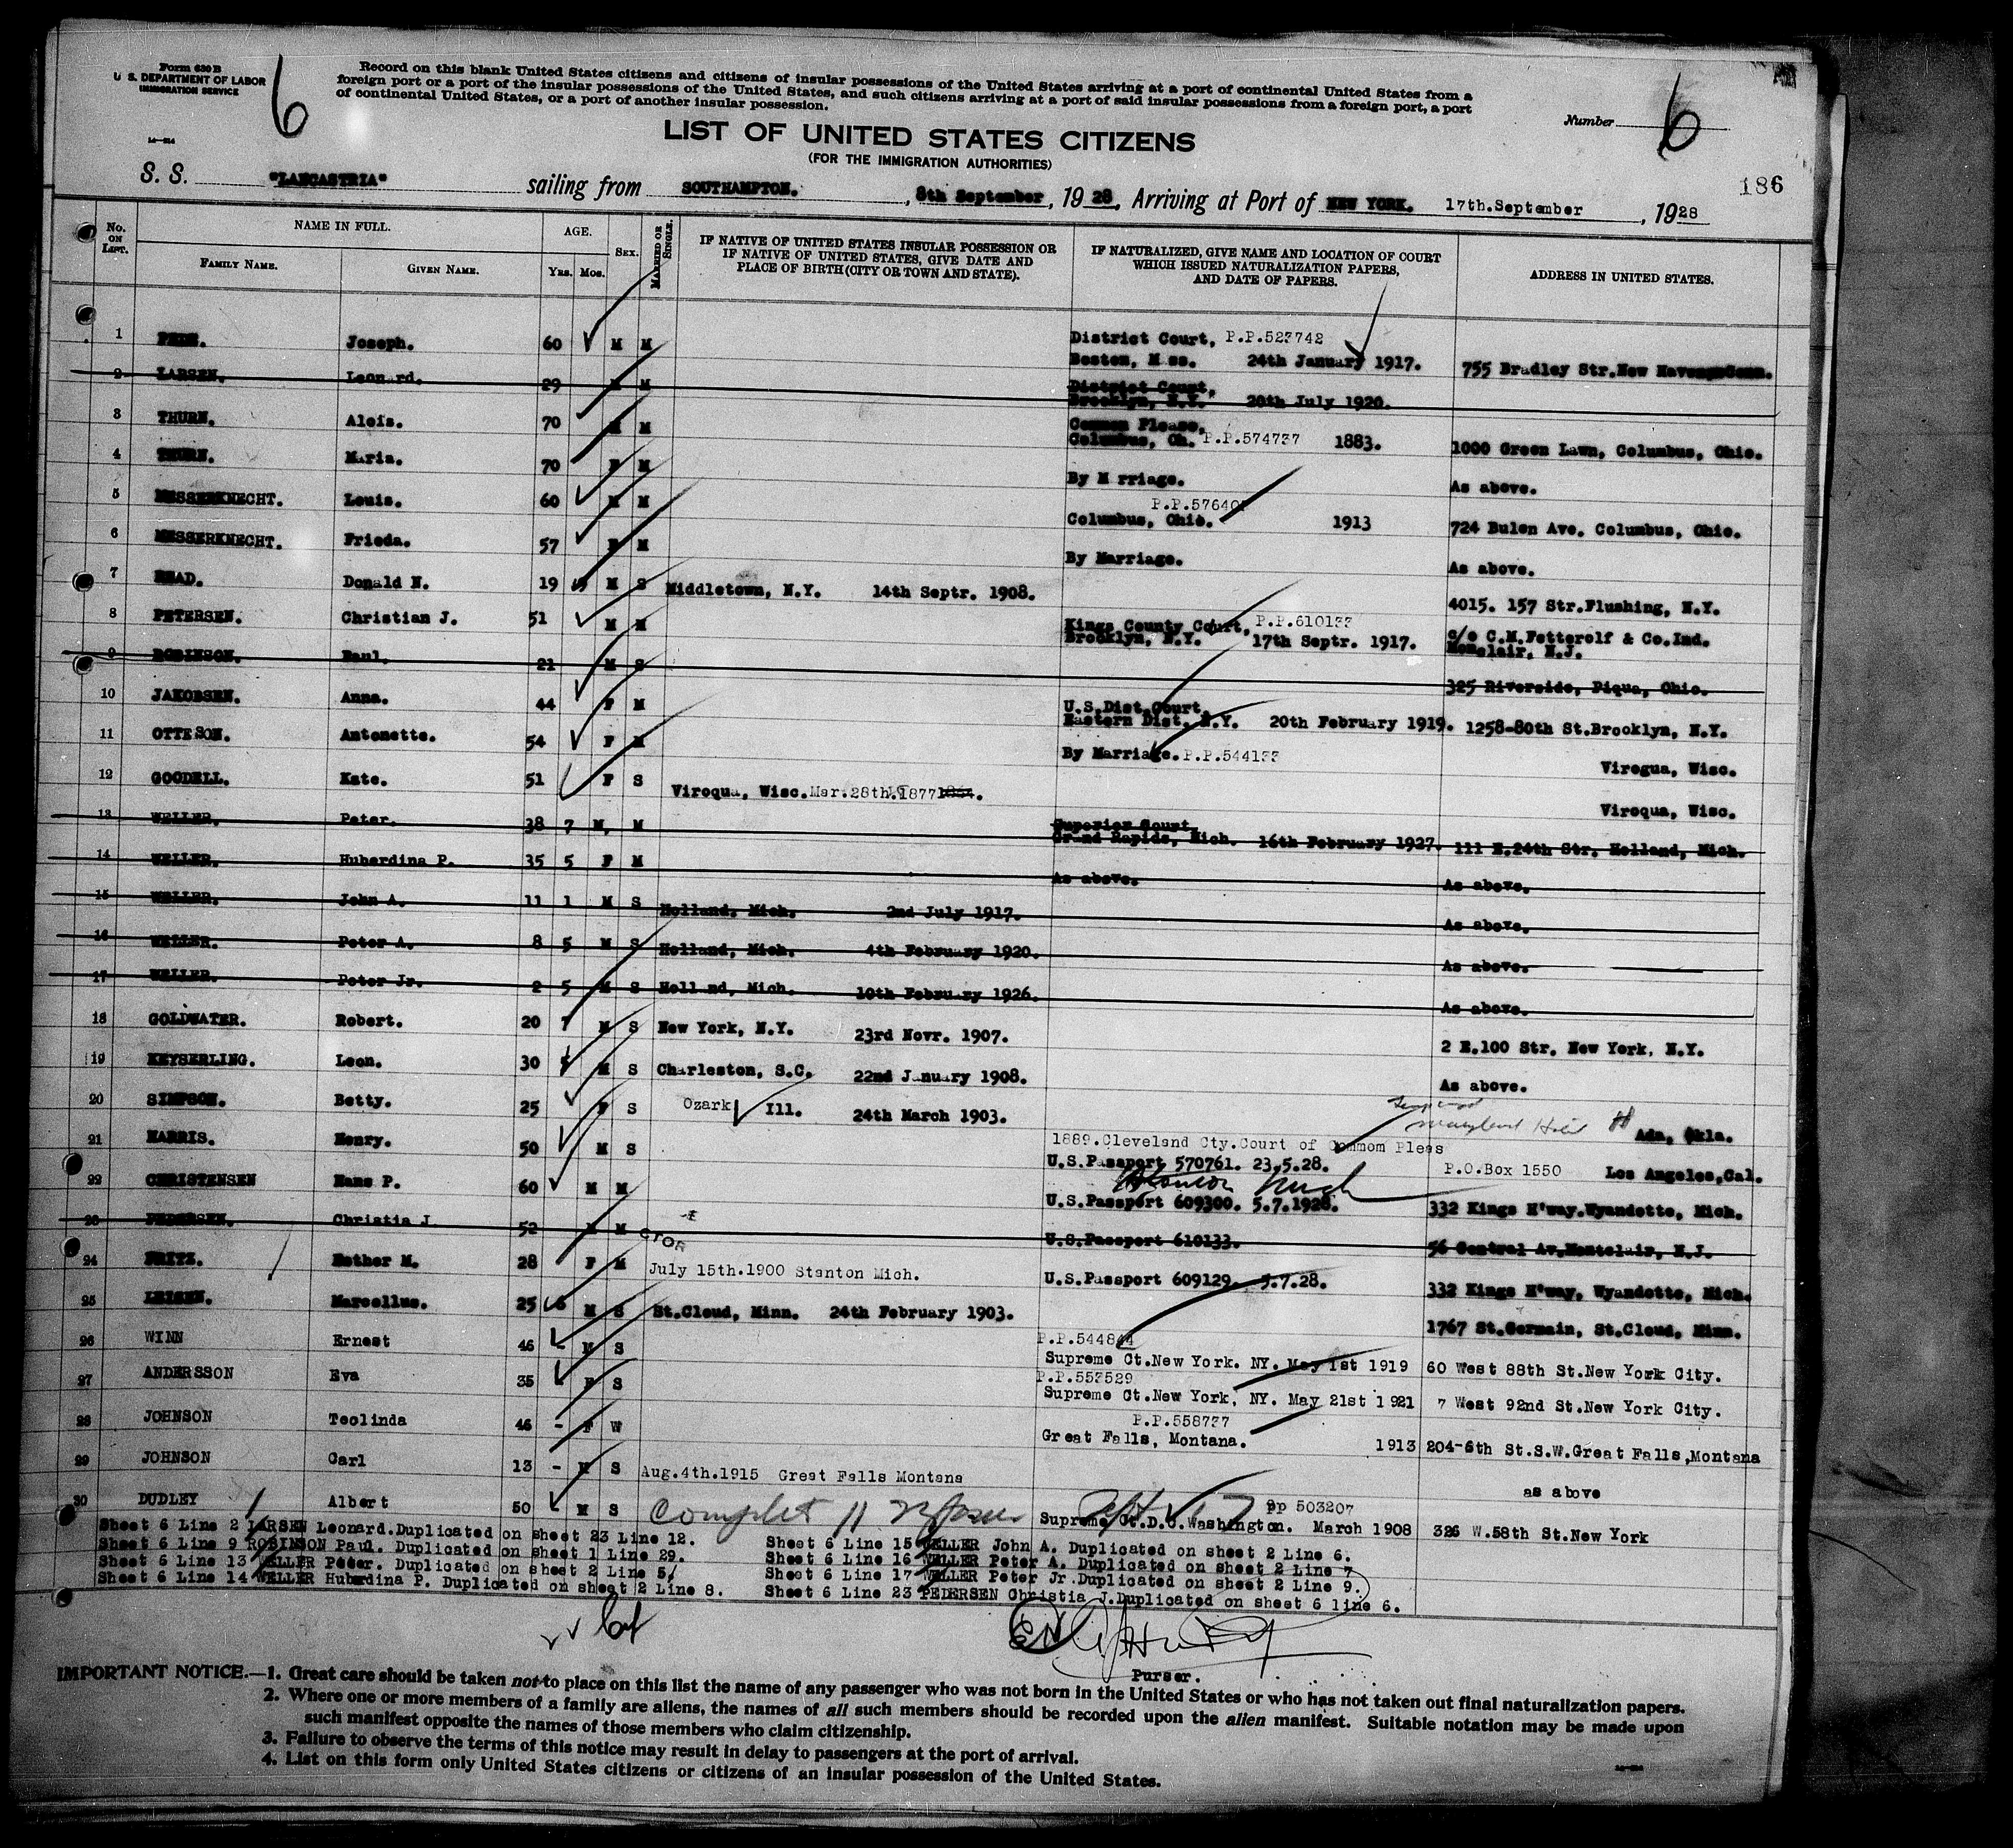 Form 630 B
U. S. DEPARTMENT OF LABOR
IMMIGRATION SERVICE
6
Record on this blank United States citizens and citizens of insular possessions of the United States arriving at a port of continental United States from a
foreign port or a port of the insular possessions of the United States, and such citizens arriving at a port of said insular possessions from a foreign port, a port
of continental United States, or a port of another insular possession.
Number 6
LIST OF UNITED STATES CITIZENS
(FOR THE IMMIGRATION AUTHORITIES)
186
S. S. "LANCASTRIA" sailing from SOUTHAMPTON. , 8th September , 19 28, Arriving at Port of NEW YORK. 17th.September , 1928
No. ON LIST. NAME IN FULL. FAMILY NAME. GIVEN NAME. AGE. YRS. MOS. SEX. MARRIED OR SINGLE. IF NATIVE OF UNITED STATES INSULAR POSSESSION OR IF NATIVE OF UNITED STATES, GIVE DATE AND PLACE OF BIRTH (CITY OR TOWN AND STATE). IF NATURALIZED, GIVE NAME AND LOCATION OF COURT WHICH ISSUED NATURALIZATION PAPERS, AND DATE OF PAPERS. ADDRESS IN UNITED STATES.
1 Joseph. 60 M M District Court, P.P.523742
Boston, M ss. 24th January 1917. 755 Bradley Str.New Haven Conn.
2 LARSEN. Leonard. 29 M M District Court,
Brooklyn, N.Y. 20th July 1920.
3 THURN. Alois. 70 M M Common Please,
Columbus, Oh. P.P.574737 1883. 1000 Green Lawn, Columbus, Ohio.
4 THURN. Maria. 70 F M By M rriage. As above.
5 MESSERKNECHT. Louis. 60 M M P.P.57640
Columbus, Ohio. 1913 724 Bulen Ave. Columbus, Ohio.
6 MESSERKNECHT. Frieda. 57 F M By Marriage. As above.
7 HEAD. Donald N. 19 M S Middletown, N.Y. 14th Septr. 1908. 4015. 157 Str.Flushing, N.Y.
8 PETERSEN. Christian J. 51 M M Kings County Court, P.P.610133
Brooklyn, N.Y. 17th Septr. 1917. c/o C.M.Fetterolf & Co.Ind.
Monclair, N.J.
9 ROBINSON. Paul. 21 M S 325 Riverside, Piqua, Ohio.
10 JAKOBSEN. Anna. 44 F M U.S.Dist.Court,
Eastern Dist. N.Y. 20th February 1919. 1258-80th St.Brooklyn, N.Y.
11 OTTESON. Antonette. 54 F M By Marriage. P.P.544133 Viroqua, Wisc.
12 GOODELL. Kate. 51 F S Viroqua, Wisc.Mar.28th.1877 Viroqua, Wisc.
13 WELLER. Peter. 38 7 M. M Superior Court,
Grand Rapids, Mich. 16th February 1927. 111 E.24th Str. Holland, Mich.
14 WELLER. Huberdina P. 35 5 F M As above. As above.
15 WELLER. John A. 11 1 M S Holland, Mich. 2nd July 1917. As above.
16 WELLER. Peter A. 8 5 M S Holland, Mich. 4th February 1920. As above.
17 WELLER. Peter Jr. 2 5 M S Holl nd, Mich. 10th February 1926. As above.
18 GOLDWATER. Robert. 20 7 M S New York, N.Y. 23rd Novr. 1907. 2 E.100 Str. New York, N.Y.
19 KEYSERLING. Leon. 30 M S Charleston, S.C. 22nd January 1908. As above.
20 SIMPSON. Betty. 25 F S Ozark Ill. 24th March 1903. Ada, Okla.
21 HARRIS. Henry. 50 M S 1889.Cleveland Cty.Court of Commom Pleas
U.S.Passport 570761. 23.5.28. P.O.Box 1550 Los Angeles,Cal.
22 CHRISTENSEN Hans P. 60 M M U.S.Passport 609300. 5.7.1928. 332 Kings H'way.Wyandotte, Mich.
23 PEDERSEN. Christia J. 52 M M U.S.Passport 610133. 56 Central Av.Montclair, N.J.
24 FRITZ. Esther M. 28 F M July 15th.1900 Stanton Mich. U.S.Passport 609129. 5.7.28. 332 Kings H'way, Wyandotte, Mich.
25 LEISEN. Marcellus. 25 6 M S St.Cloud, Minn. 24th February 1903. 1767 St.Germain, St.Cloud, Minn.
26 WINN Ernest 46 M S P.P.544844
Supreme Ct.New York. NY. May 1st 1919 60 West 88th St.New York City.
27 ANDERSSON Eva 35 F S P.P.553529
Supreme Ct.New York, NY. May 21st 1921 7 West 92nd St.New York City.
28 JOHNSON Teolinda 46 - F W P.P.558737
Great Falls, Montana. 1913 204-6th St.S.W.Great Falls,Montana
29 JOHNSON Carl 13 - M S Aug.4th.1915 Great Falls Montana as above
30 DUDLEY Albert 50 M S Complet pp 503207
Supreme Ct.D.C.Washington. March 1908 326 W.58th St.New York
Sheet 6 Line 2 LARSEN Leonard.Duplicated on sheet 23 Line 12. Sheet 6 Line 15 WELLER John A. Duplicated on sheet 2 Line 6.
Sheet 6 Line 9 ROBINSON Paul. Duplicated on sheet 1 Line 29. Sheet 6 Line 16 WELLER Peter A. Duplicated on sheet 2 Line 7
Sheet 6 Line 13 WELLER Peter. Duplicated on sheet 2 Line 5. Sheet 6 Line 17 WELLER Peter Jr.Duplicated on sheet 2 Line 9.
Sheet 6 Line 14 WELLER Huberdina P. Duplicated on sheet 2 Line 8. Sheet 6 Line 23 PEDERSEN Christia J.Duplicated on sheet 6 line 6.
Purser.
IMPORTANT NOTICE.—1. Great care should be taken not to place on this list the name of any passenger who was not born in the United States or who has not taken out final naturalization papers.
2. Where one or more members of a family are aliens, the names of all such members should be recorded upon the alien manifest. Suitable notation may be made upon
such manifest opposite the names of those members who claim citizenship.
3. Failure to observe the terms of this notice may result in delay to passengers at the port of arrival.
4. List on this form only United States citizens or citizens of an insular possession of the United States.